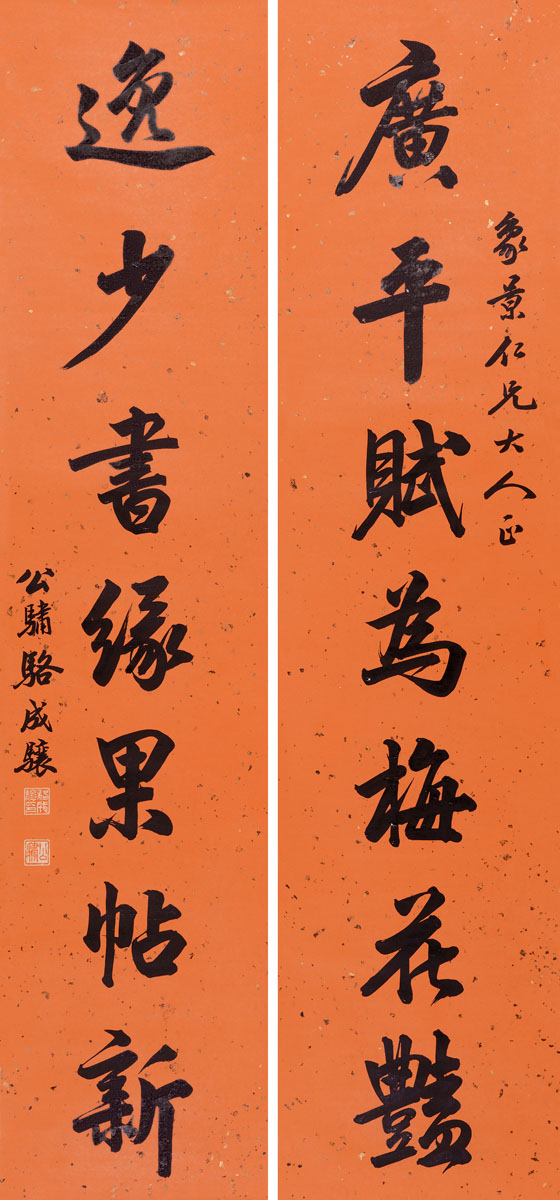 象景仁兄大人正
廣平賦為梅花豔
逸少書緣果帖新
公驌駱成驤